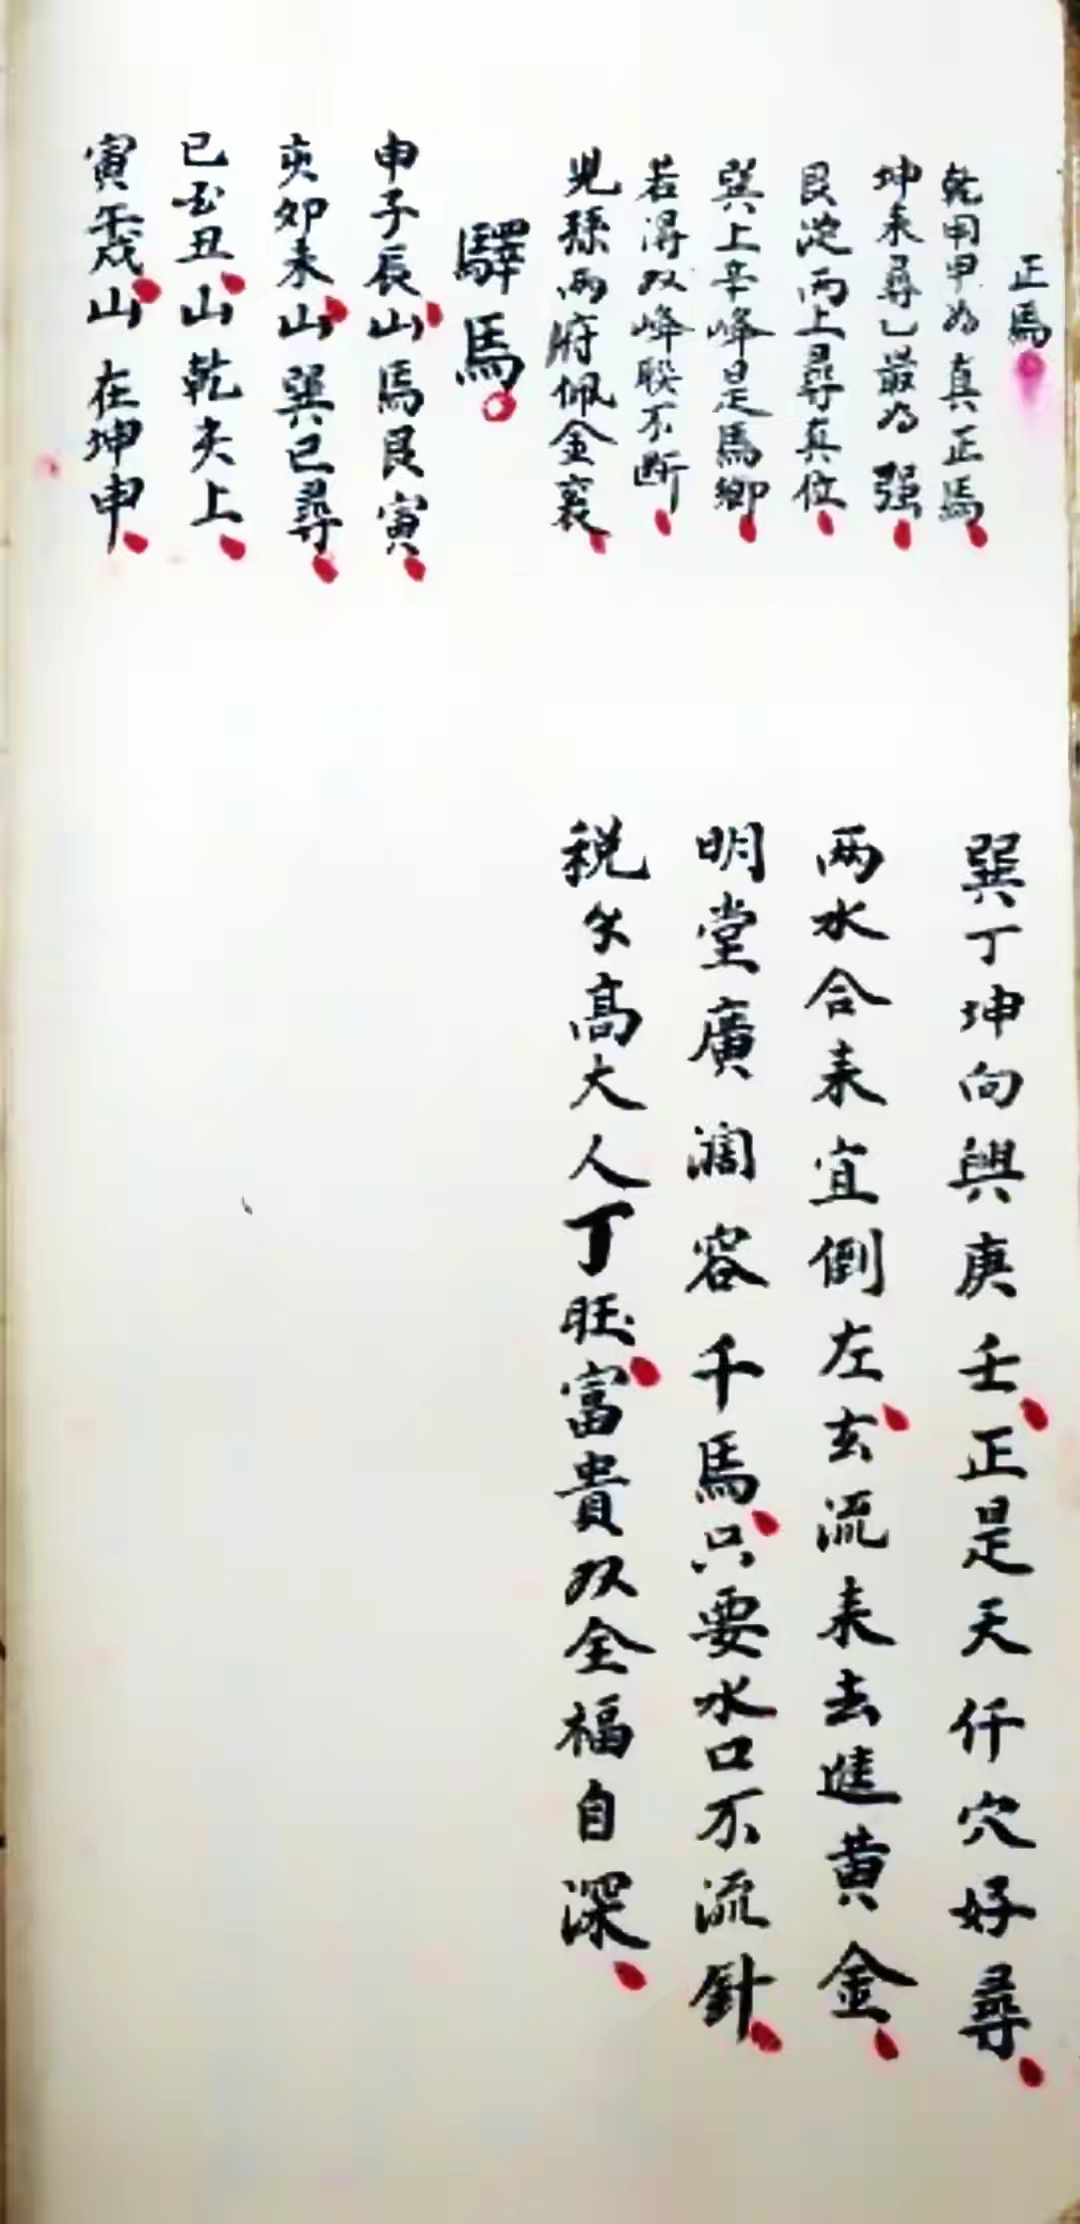 正馬
乾用甲为真正馬
坤来尋乙最为强
艮從丙上尋真位
巽上辛峰是馬鄉
若得双峰联不断
児孫两府佩金裹
驛馬
申子辰山馬艮寅
亥卯未山巽巳尋
巳酉丑山乾亥上
寅午戌山在坤申
巽丁坤向與庚壬正是天仟穴好尋
两水合来宜倒左玄流来去進黄金
明堂廣濶容千馬只要水口不流針
税高大人丁旺富貴双全福自深